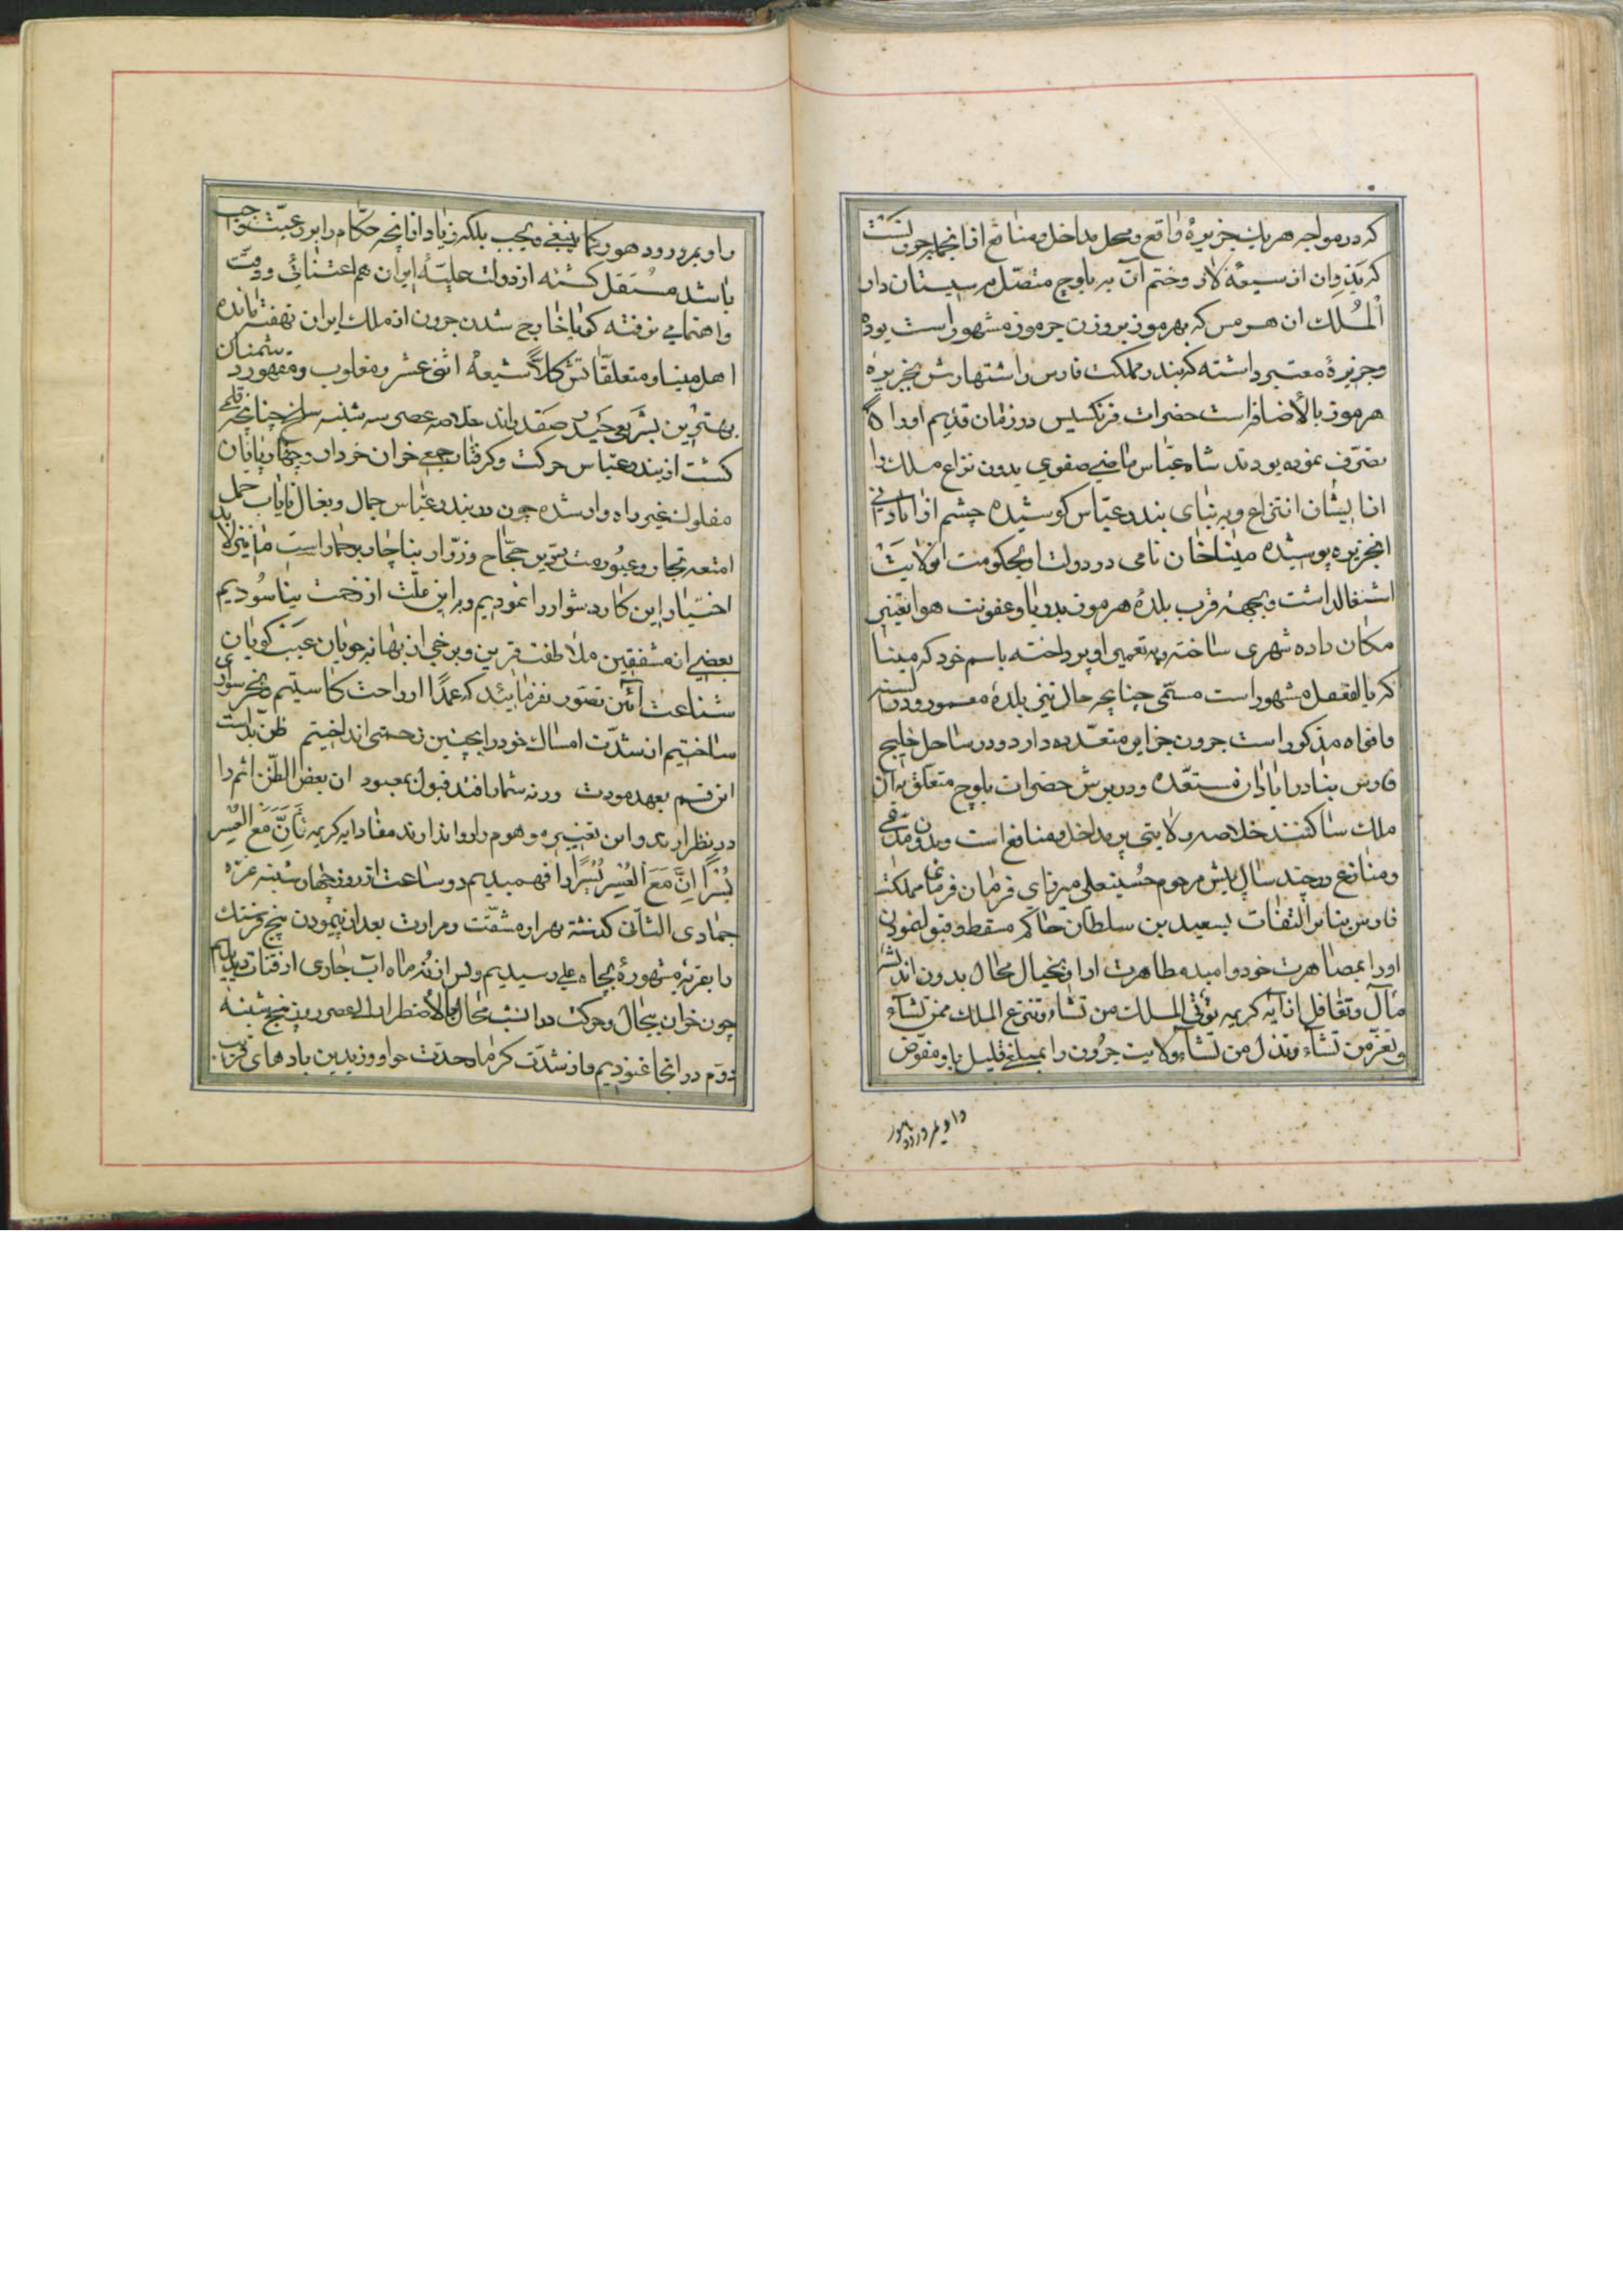 که در مواجه هر یک جزیرهٔ واقع و محل مداخل و منافع از انجمله جرونست
که یَزدِوان از سیعهٔ لار و ختم آن به بلوچ متصل به سیستان دار
اَلْمُلک ان هرمس که بهرموز بروزن جرموز مشهور است بوده
و جزیرهٔ معتبر داشته که بندر مملکت فارس را اشتهارش بجزیره
هرموز بالأضافه است حضرات فرنکسیس در زمان قدیم اورا
تصرّف نموده بودند شاه عبّاس ماضی صفوی بدون نزاع ملک را
از ایشان انتزاع و به بنای بندر عبّاس کوشیده چشم از ابادانی
انجزیره پوشیده میناخان نامی در دولت او بحکومت انولایت
اشتغال داشت و بجههٔ قرب بلدهٔ هرموز بدریا و عفونت هوا تغییر
مکان داده شهری ساخته و به تعمیر او پرداخته باسم خود که مینا
که بالفعل مشهور است مسمّی چنانچه حال نیز بلدهٔ معمور و در السنه
و افواه مذکور است جرون جزایر متعدّده دارد و در ساحل خلیج
فارس بنادر ابادان مستعدّه و در برش حضرات بلوچ متعلّق به آن
ملک ساکنند خلاصه ولایتی پر مداخل و منافع است و بدون مدّعی
و منازع در چند سال پیش مرحوم حسینعلی میرزای فرمان فرمای مملکت
فارس بنابر التفات بسعید بن سلطان حاکم مسقط و قبول نمودن
اورا بمصاهرت خود و امید مظاهرت از او بخیال محال بدون اندیشه
مآل و تغافل از آیه کریمه تؤتی الملک من تشاء و تنزع الملک ممن تشآء
و تعزّ من تشآء و تذل من تشآء ولایت جرون را بمبلغ قلیل باو مفوّض
را و بمرور دهور
را و بمرور دهور کما ینبغی و یجب بلکه زیاد از انچه حکّام را بر رعیّت واجب
باشد مستقل کشته از دولت علیّهٔ ایران هم اعتنائی و وقت
و اهتمامی نرفته کویا خارج شدن جرون از ملک ایران نهفته مانده
اهل مینا و متعلّقاتش کلاًّ شیعهٔ اثنی عشر و مغلوب و مقهور دشمنان
بهترین بشر یعنی حیدر صفدراند خلاصه عصر سه شنبه سلخ چنانچه قلمی
کشت از بندر عباس حرکت و کرفتار جمعی خران خردار و چهارپایان
مفلوک غیر راه وار شده چون در بندر عباس جمال و بغال نایاب حمل
امتعه تجّار و عبور مترددین حجّاج و زوّار بناچار بر حمار است ما نیز لابد
اختیار این کار دشوار را نمودیم و بر این علّت از زحمت نیاسودیم
بعضی از مشفقین ملاطفت قرین و برخی از بهانه جویان عیب کویان
شناعت آئین تصوّر نفرمایند که عمدًا از راحت کاستیم و بخر سواری
ساختیم از شدّت امساک خود را بچنین زحمتی انداختیم ظنّ بد است
این قسم بعهد مودت ورنه شما را قند قبول بمعبود ان بعض الظّن اثم را
در نظر ارید و این تغییر و هوم را روا ندارند مفاد ایه کریمه فَاِنَّ مَعَ العُسر
یُسْرًا اِنَّ مَعَ العُسْرِ یُسْرًا را فهمیدیم دو ساعت از روز چهار شنبه غرّه
جمادی الثانی کذشته بهزاره مشقّت و مرارت بعد از پیمودن پنج فرسنک
را بقریهٔ مشهورهٔ بچاه علی رسیدیم و پس از نُه ماه اب جاری از قنات دیدیم
چون خران بیحال و حرکت در انشب محال بالأضطرار الی عصر روز پنج شنبه
دوّم در انجا غنودیم و از شدّت کرما و حدّت هوا و وزیدین بادهای قریب